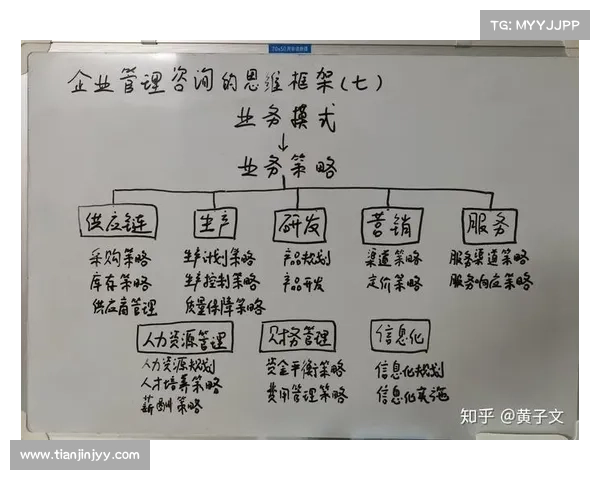 TG: MYYJJPP
企业管理咨询的思维框架(七)
业务模式
↓
业务策略
供应链 生产 研发 营销 服务
采购策略 生产计划策略 产品规划 渠道策略 服务渠道策略
库存策略 生产控制策略 产品开发 定价策略 服务响应策略
供应商管理 质量保障策略
人力资源管理 财务管理 信息化
人力资源规划 资金平衡策略 信息化规划
人才培养策略 费用管理策略 信息化实施
薪酬策略
知乎 @黄子文
www.tianjinjyy.com